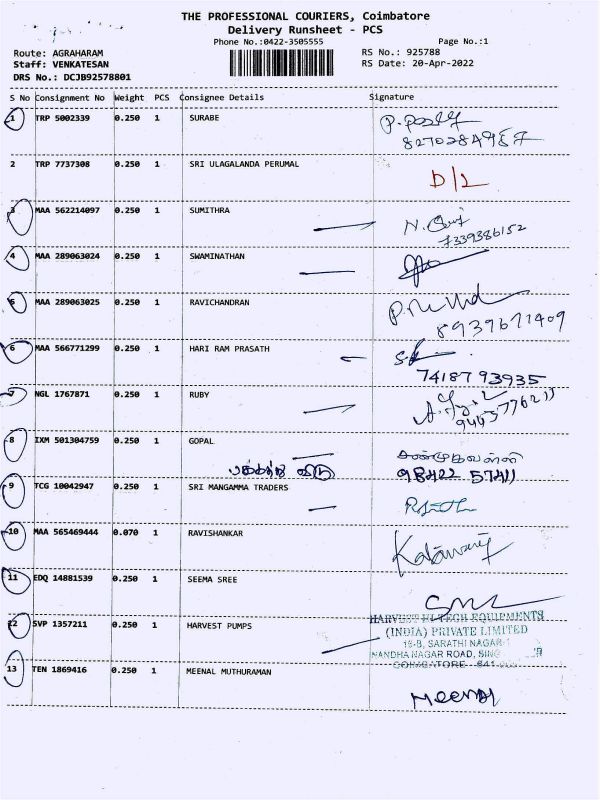 THE PROFESSIONAL COURIERS, Coimbatore
Delivery Runsheet - PCS
Phone No.:0422-3505555
Page No.:1
Route: AGRAHARAM
RS No.: 925788
Staff: VENKATESAN
RS Date: 20-Apr-2022
DRS No.: DCJB92578801
S No Consignment No Weight PCS Consignee Details Signature
1 TRP 5002339 0.250 1 SURABE
2 TRP 7737308 0.250 1 SRI ULAGALANDA PERUMAL
D/L
3 MAA 562214097 0.250 1 SUMITHRA
7339386152
4 MAA 289063024 0.250 1 SWAMINATHAN
5 MAA 289063025 0.250 1 RAVICHANDRAN
8939671409
6 MAA 566771299 0.250 1 HARI RAM PRASATH
74187 93935
7 NGL 1767871 0.250 1 RUBY
8 IXM 501304759 0.250 1 GOPAL
சண்முகவள்ளி
பக்கத்து வீடு
98422 57411
9 TCG 10042947 0.250 1 SRI MANGAMMA TRADERS
10 MAA 565469444 0.070 1 RAVISHANKAR
11 EDQ 14881539 0.250 1 SEEMA SREE
12 SVP 1357211 0.250 1 HARVEST PUMPS
HARVEST HI-TECH EQUIPMENTS
(INDIA) PRIVATE LIMITED
SARATHI NAGAR
NANDHA NAGAR ROAD,
COIMBATORE - 641
13 TEN 1869416 0.250 1 MEENAL MUTHURAMAN
Meenal